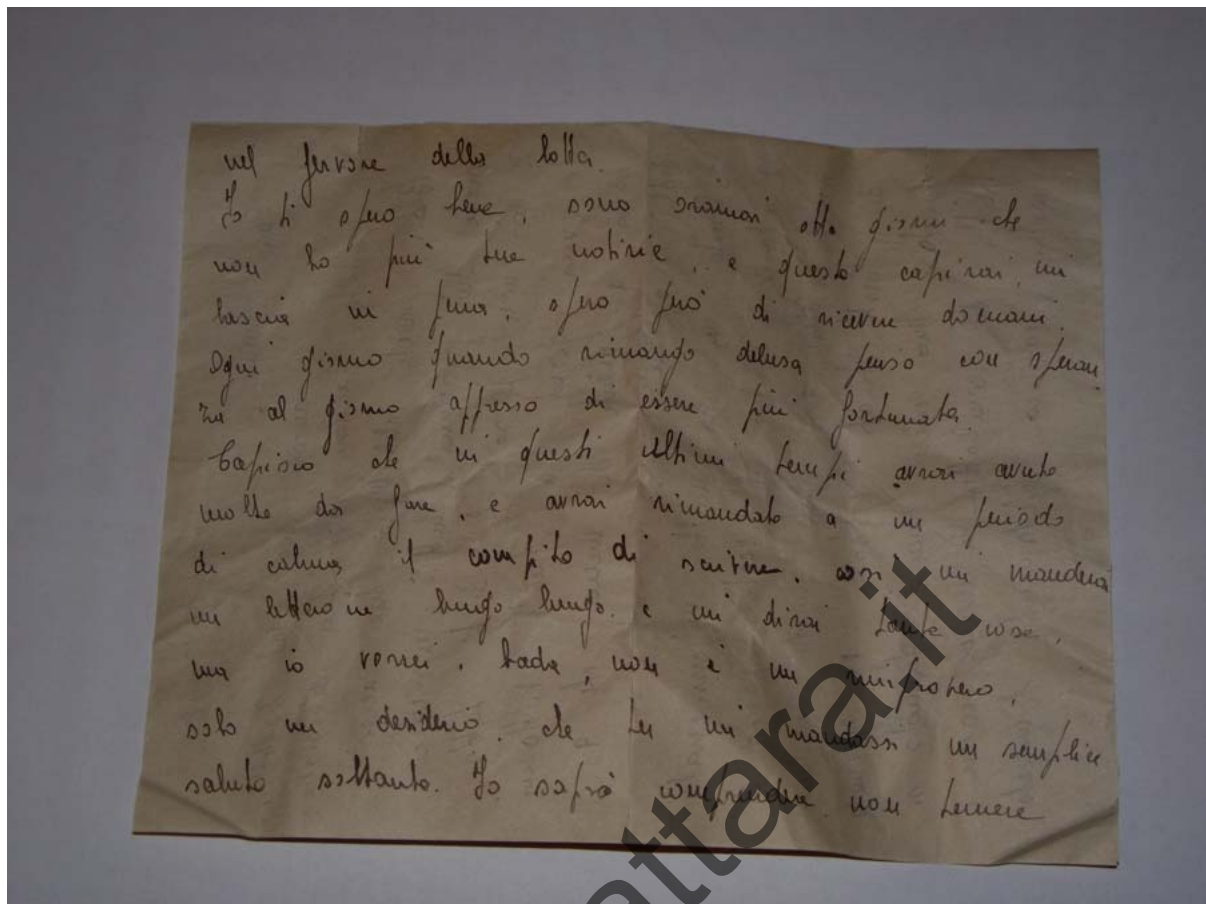 nel fervore della lotta.
Io ti spero bene, sono oramai otto giorni che
non ho più tue notizie, e questo capirai, mi
lascia in pena, spero però di ricevere domani.
Ogni giorno quando rimango delusa penso con speran
za al giorno appresso di essere più fortunata.
Capisco che in questi ultimi tempi avrai avuto
molto da fare, e avrai rimandato a un periodo
di calma, il compito di scrivere, così mi manderai
un letterone lungo lungo, e mi dirai tante cose,
ma io vorrei, bada, non è un rimprovero,
solo un desiderio, che tu mi mandassi un semplice
saluto soltanto. Io saprò comprendere non temere
attara.it